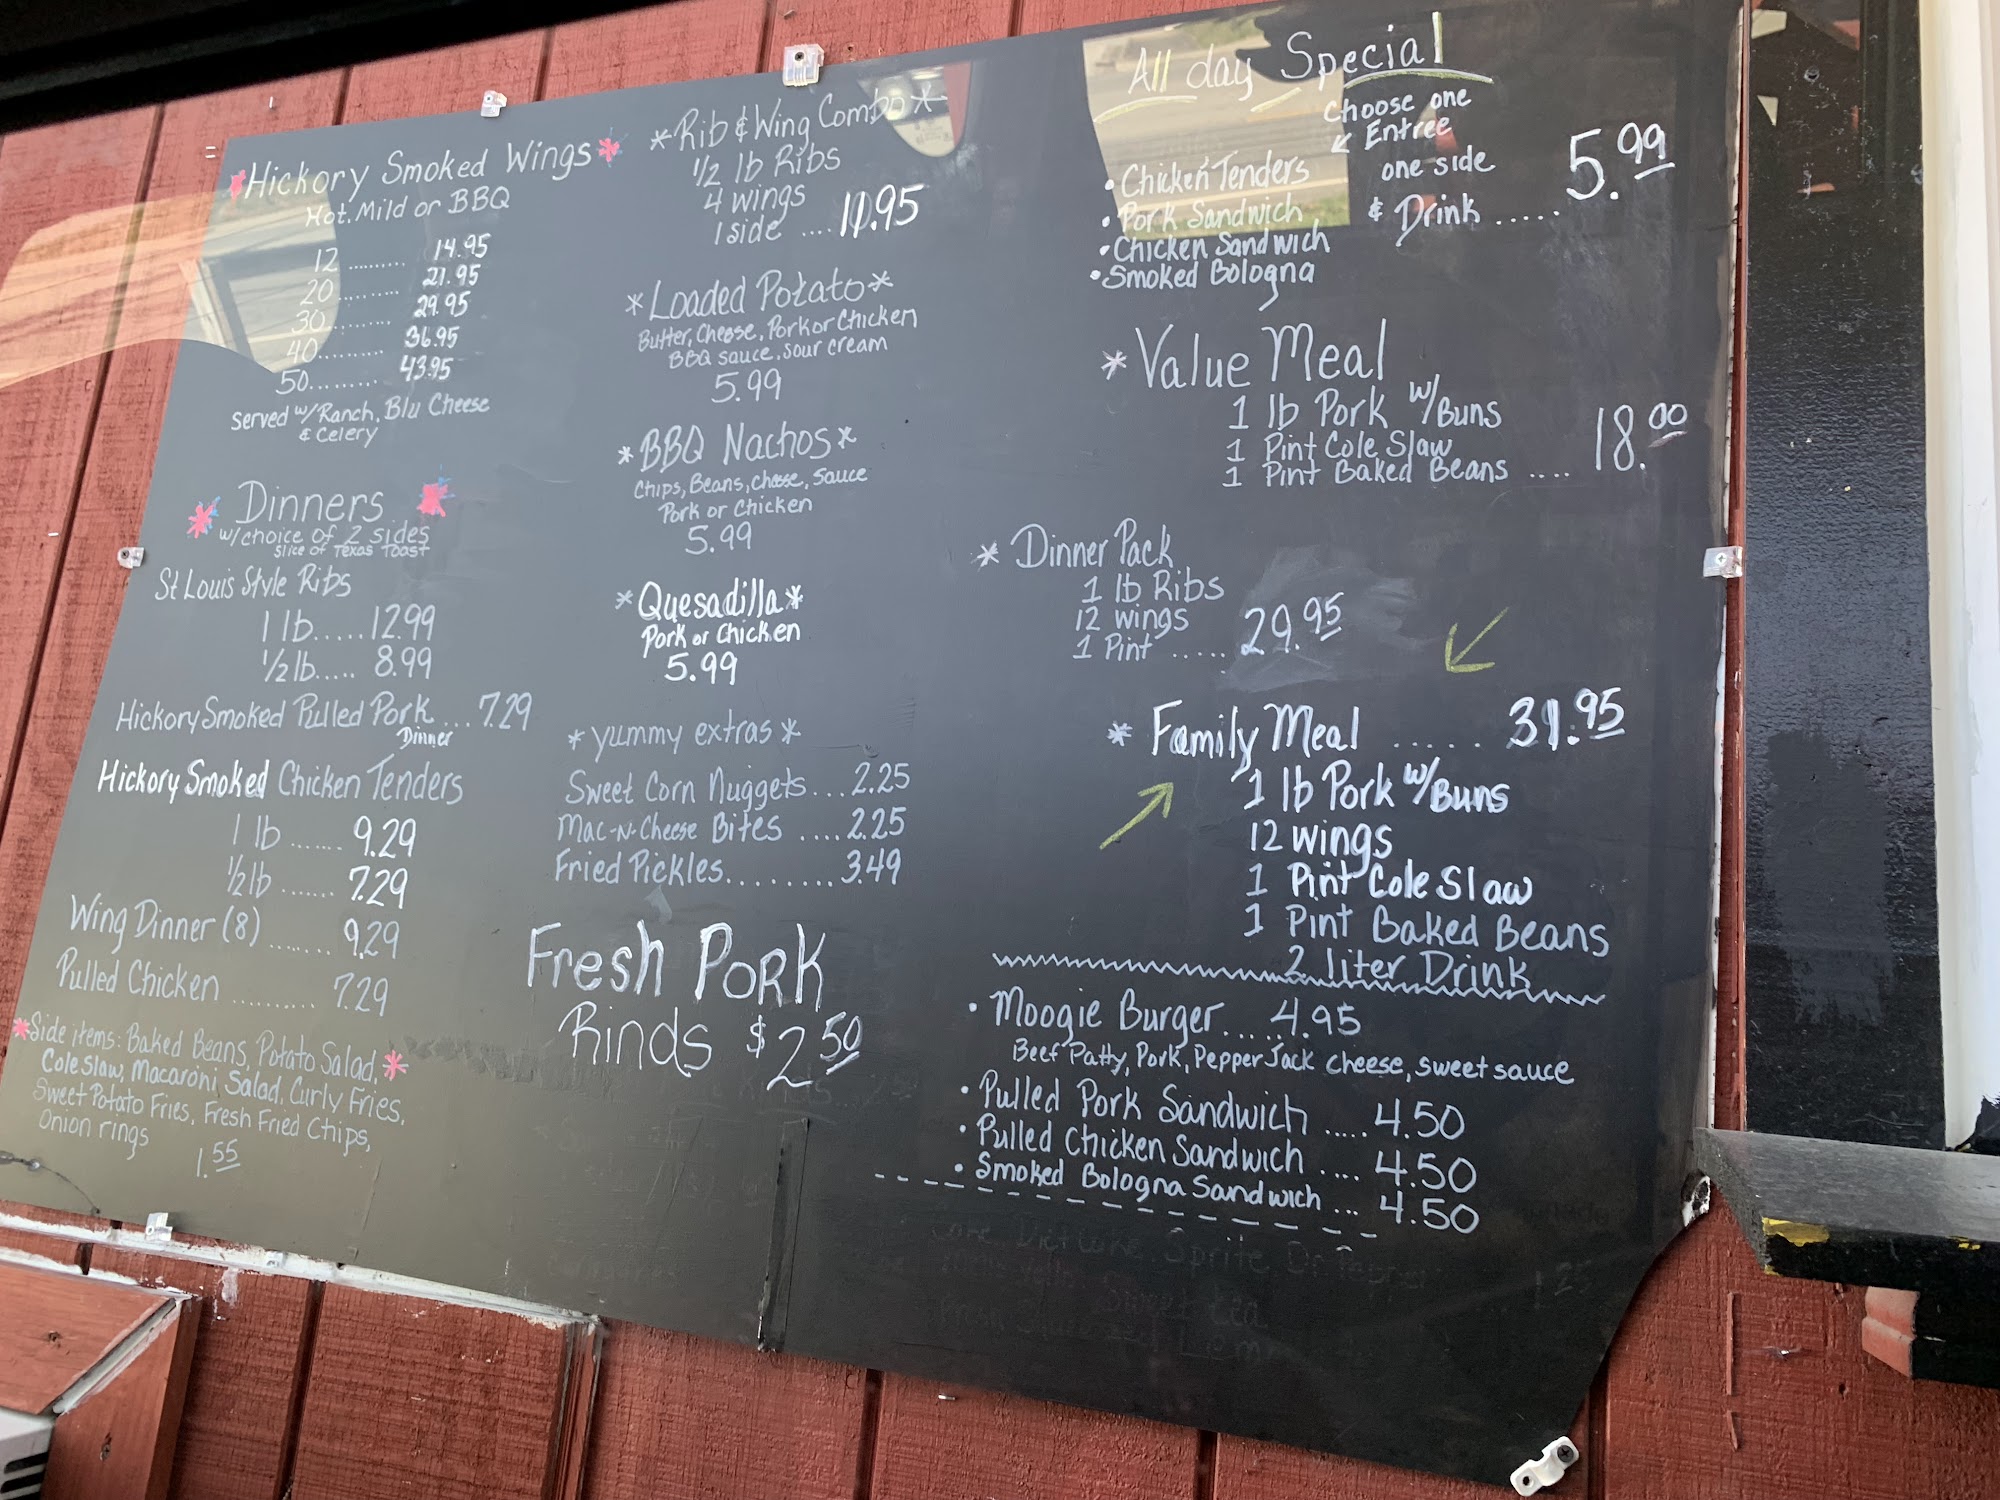 Hickory Smoked Wings
Hot, Mild or BBQ
12 ......... 14.95
20 ......... 21.95
30 ......... 29.95
40 ......... 36.95
50 ......... 43.95
served w/ Ranch, Blu Cheese
& Celery
Dinners
w/choice of 2 sides
slice of Texas Toast
St Louis Style Ribs
1 lb ..... 12.99
1/2 lb ..... 8.99
Hickory Smoked Pulled Pork ... 7.29
Dinner
Hickory Smoked Chicken Tenders
1 lb ...... 9.29
1/2 lb ...... 7.29
Wing Dinner (8) ....... 9.29
Pulled Chicken ......... 7.29
*Side items: Baked Beans, Potato Salad,*
Cole Slaw, Macaroni Salad, Curly Fries,
Sweet Potato Fries, Fresh Fried Chips,
Onion rings
1.55
*Rib & Wing Combo*
1/2 lb Ribs
4 wings
1 side ....
*Loaded Potato*
Butter, Cheese, Pork or Chicken
BBQ sauce, Sour cream
5.99
*BBQ Nachos*
Chips, Beans, cheese, Sauce
Pork or Chicken
5.99
*Quesadilla*
Pork or Chicken
5.99
*yummy extras*
Sweet Corn Nuggets... 2.25
Mac-N-Cheese Bites .... 2.25
Fried Pickles......... 3.49
Fresh Pork
Rinds $2.50
All day Special
Choose one
Entree
one side
& Drink ..... 5.99
• Chicken Tenders
• Pork Sandwich
• Chicken Sandwich
• Smoked Bologna
* Value Meal
1 lb Pork w/Buns
1 Pint Cole Slaw
1 Pint Baked Beans .... 18.00
* Dinner Pack
1 lb Ribs
12 wings
1 Pint ..... 29.95
* Family Meal ..... 31.95
1 lb Pork w/Buns
12 wings
1 Pint Cole Slaw
1 Pint Baked Beans
2 liter Drink
• Moogie Burger...... 4.95
Beef Patty, Pork, Pepper Jack cheese, sweet sauce
• Pulled Pork Sandwich ..... 4.50
• Pulled Chicken Sandwich .... 4.50
• Smoked Bologna Sandwich ... 4.50